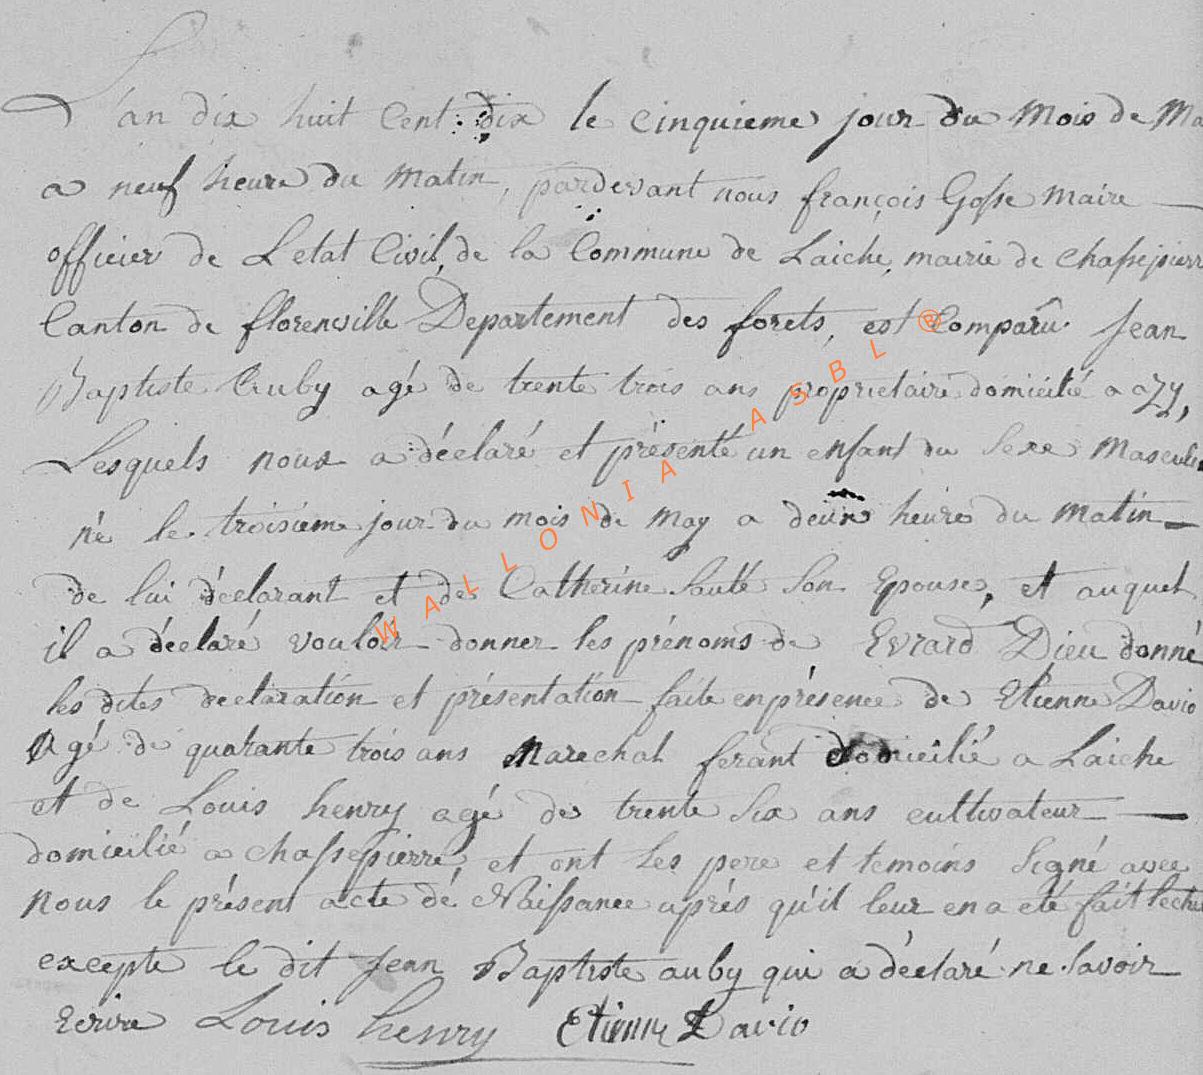 L'an dix huit Cent dix le cinquieme jour du Mois de Ma
a neuf heure du Matin, pardevant nous françois Gosse Maire
officier de L'etat Civil, de la Commune de Laiche, mairie de chassepierr
Canton de florenville Departement des forets, est Comparû Jean
Baptiste Auby agé de trente trois ans proprietaire domicilié a azy,
Lesquels nous a déclaré et présenté un enfant du Sexe Masculin
né le troisieme jour du mois de May a deux heures du Matin
de lui déclarant et de Catherine Sauté Son Epouse, et auquel
il a déclaré vouloir donner les prénoms de Evrard Dieu donné
les dites declaration et présentation faite en présence de Etienne Davio
Agé de quarante trois ans Marechal ferant domicilié a Laiche
et de Louis henry agé de trente Six ans cultivateur
domicilié a chassepierre, et ont Les pere et temoins Signé avec
Nous le présent acte de Naissance après qu'il leur en a eté fait lectu
excepte le dit Jean Baptiste auby qui a déclaré ne Savoir
Ecrire Louis henry Etienne Davio
WALLONIA ASBL ®